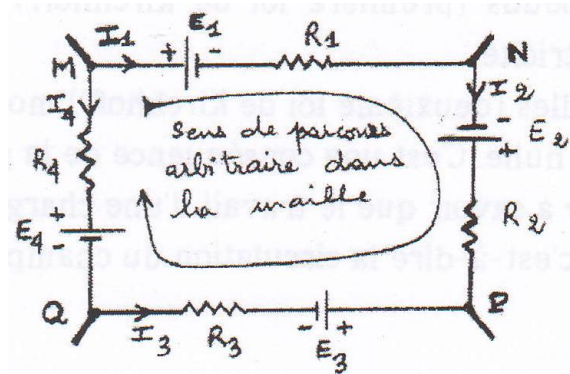 M I1 + E1 - R1 N
I4 I2
sens de parcours
arbitraire dans
la maille
E2
R4
R2
E4 + -
Q I3 R3 - E3 + P